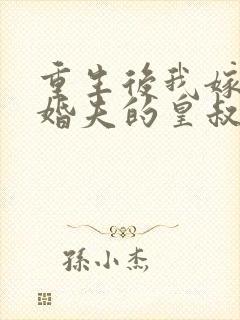 重生後我嫁
婚夫的皇叔
孫小杰